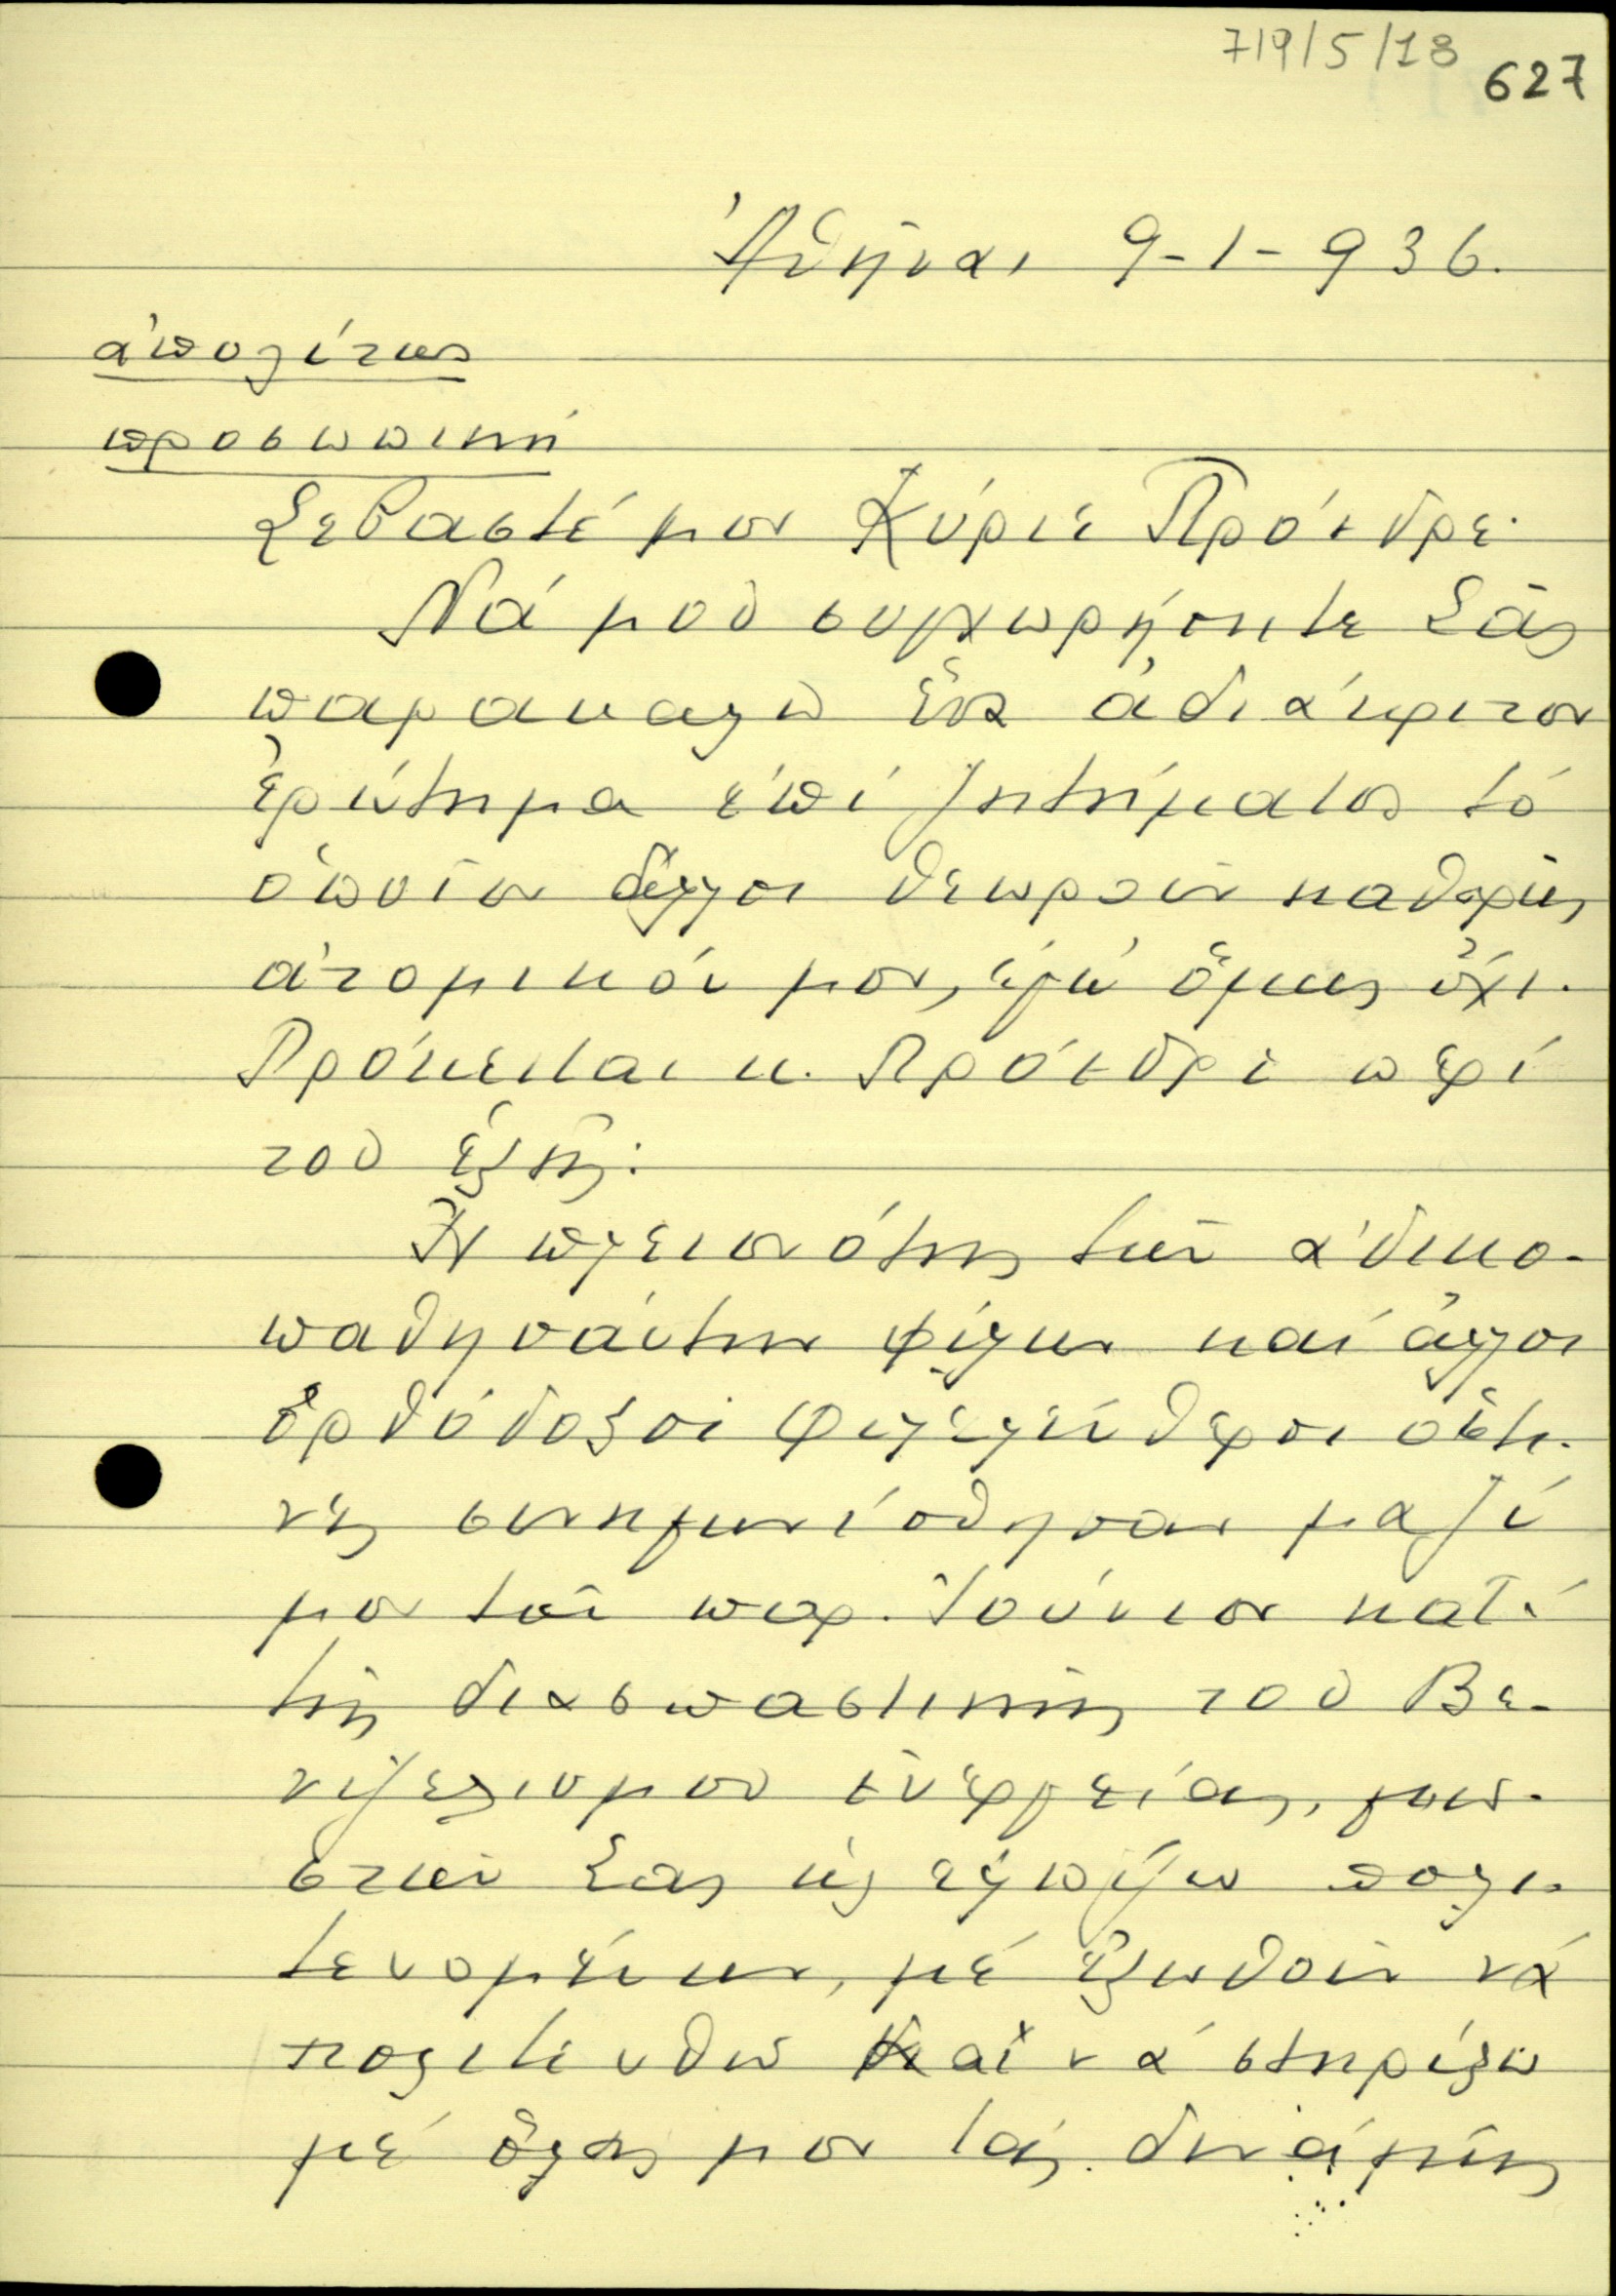 719/5/18
627
Ἀθῆναι 9-1-936.
ἀπολύτως
προσωπική
Σεβαστέ μου Κύριε Πρόεδρε.
Νά μοῦ συγχωρήσητε Σᾶς
παρακαλῶ ἕνα ἀδιάκριτον
ἐρώτημα ἐπί ζητήματος τό
ὁποῖον ἄλλοι θεωροῦν καθαρῶς
ἀτομικόν μου, ἐγώ ὅμως ὄχι.
Πρόκειται κ. Πρόεδρε περί
τοῦ ἑξῆς:
Ἡ πλειονότης τῶν ἀδικο-
παθησάντων φίλων καί ἄλλοι
ὀρθόδοξοι Φιλελεύθεροι οἵτι-
νες συνηγωνίσθησαν μαζί
μου τόν παρ. Ἰούνιον κατά
τῆς διασπαστικῆς τοῦ Βε-
νιζελισμοῦ ἐνεργείας, γνω-
στῶν Σας ὡς ἐλπίζω πολι-
τευομένων, μέ ἐξωθοῦν νά
πολιτευθῶ καί νά στηρίξω
μέ ὅλας μου τάς δυνάμεις